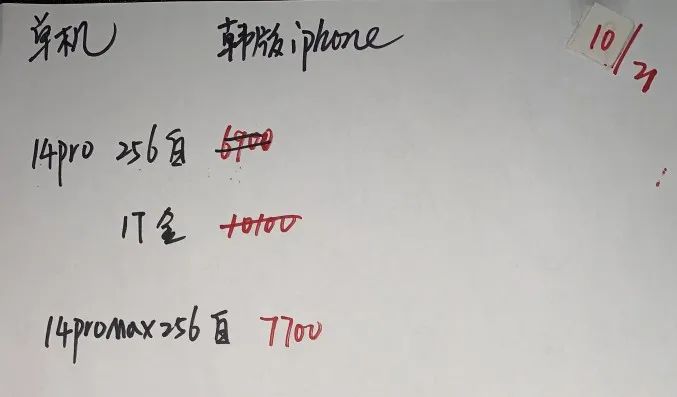 单机 韩版iphone 10/21
14pro 256白 6900
1T金 10100
14promax256白 7700